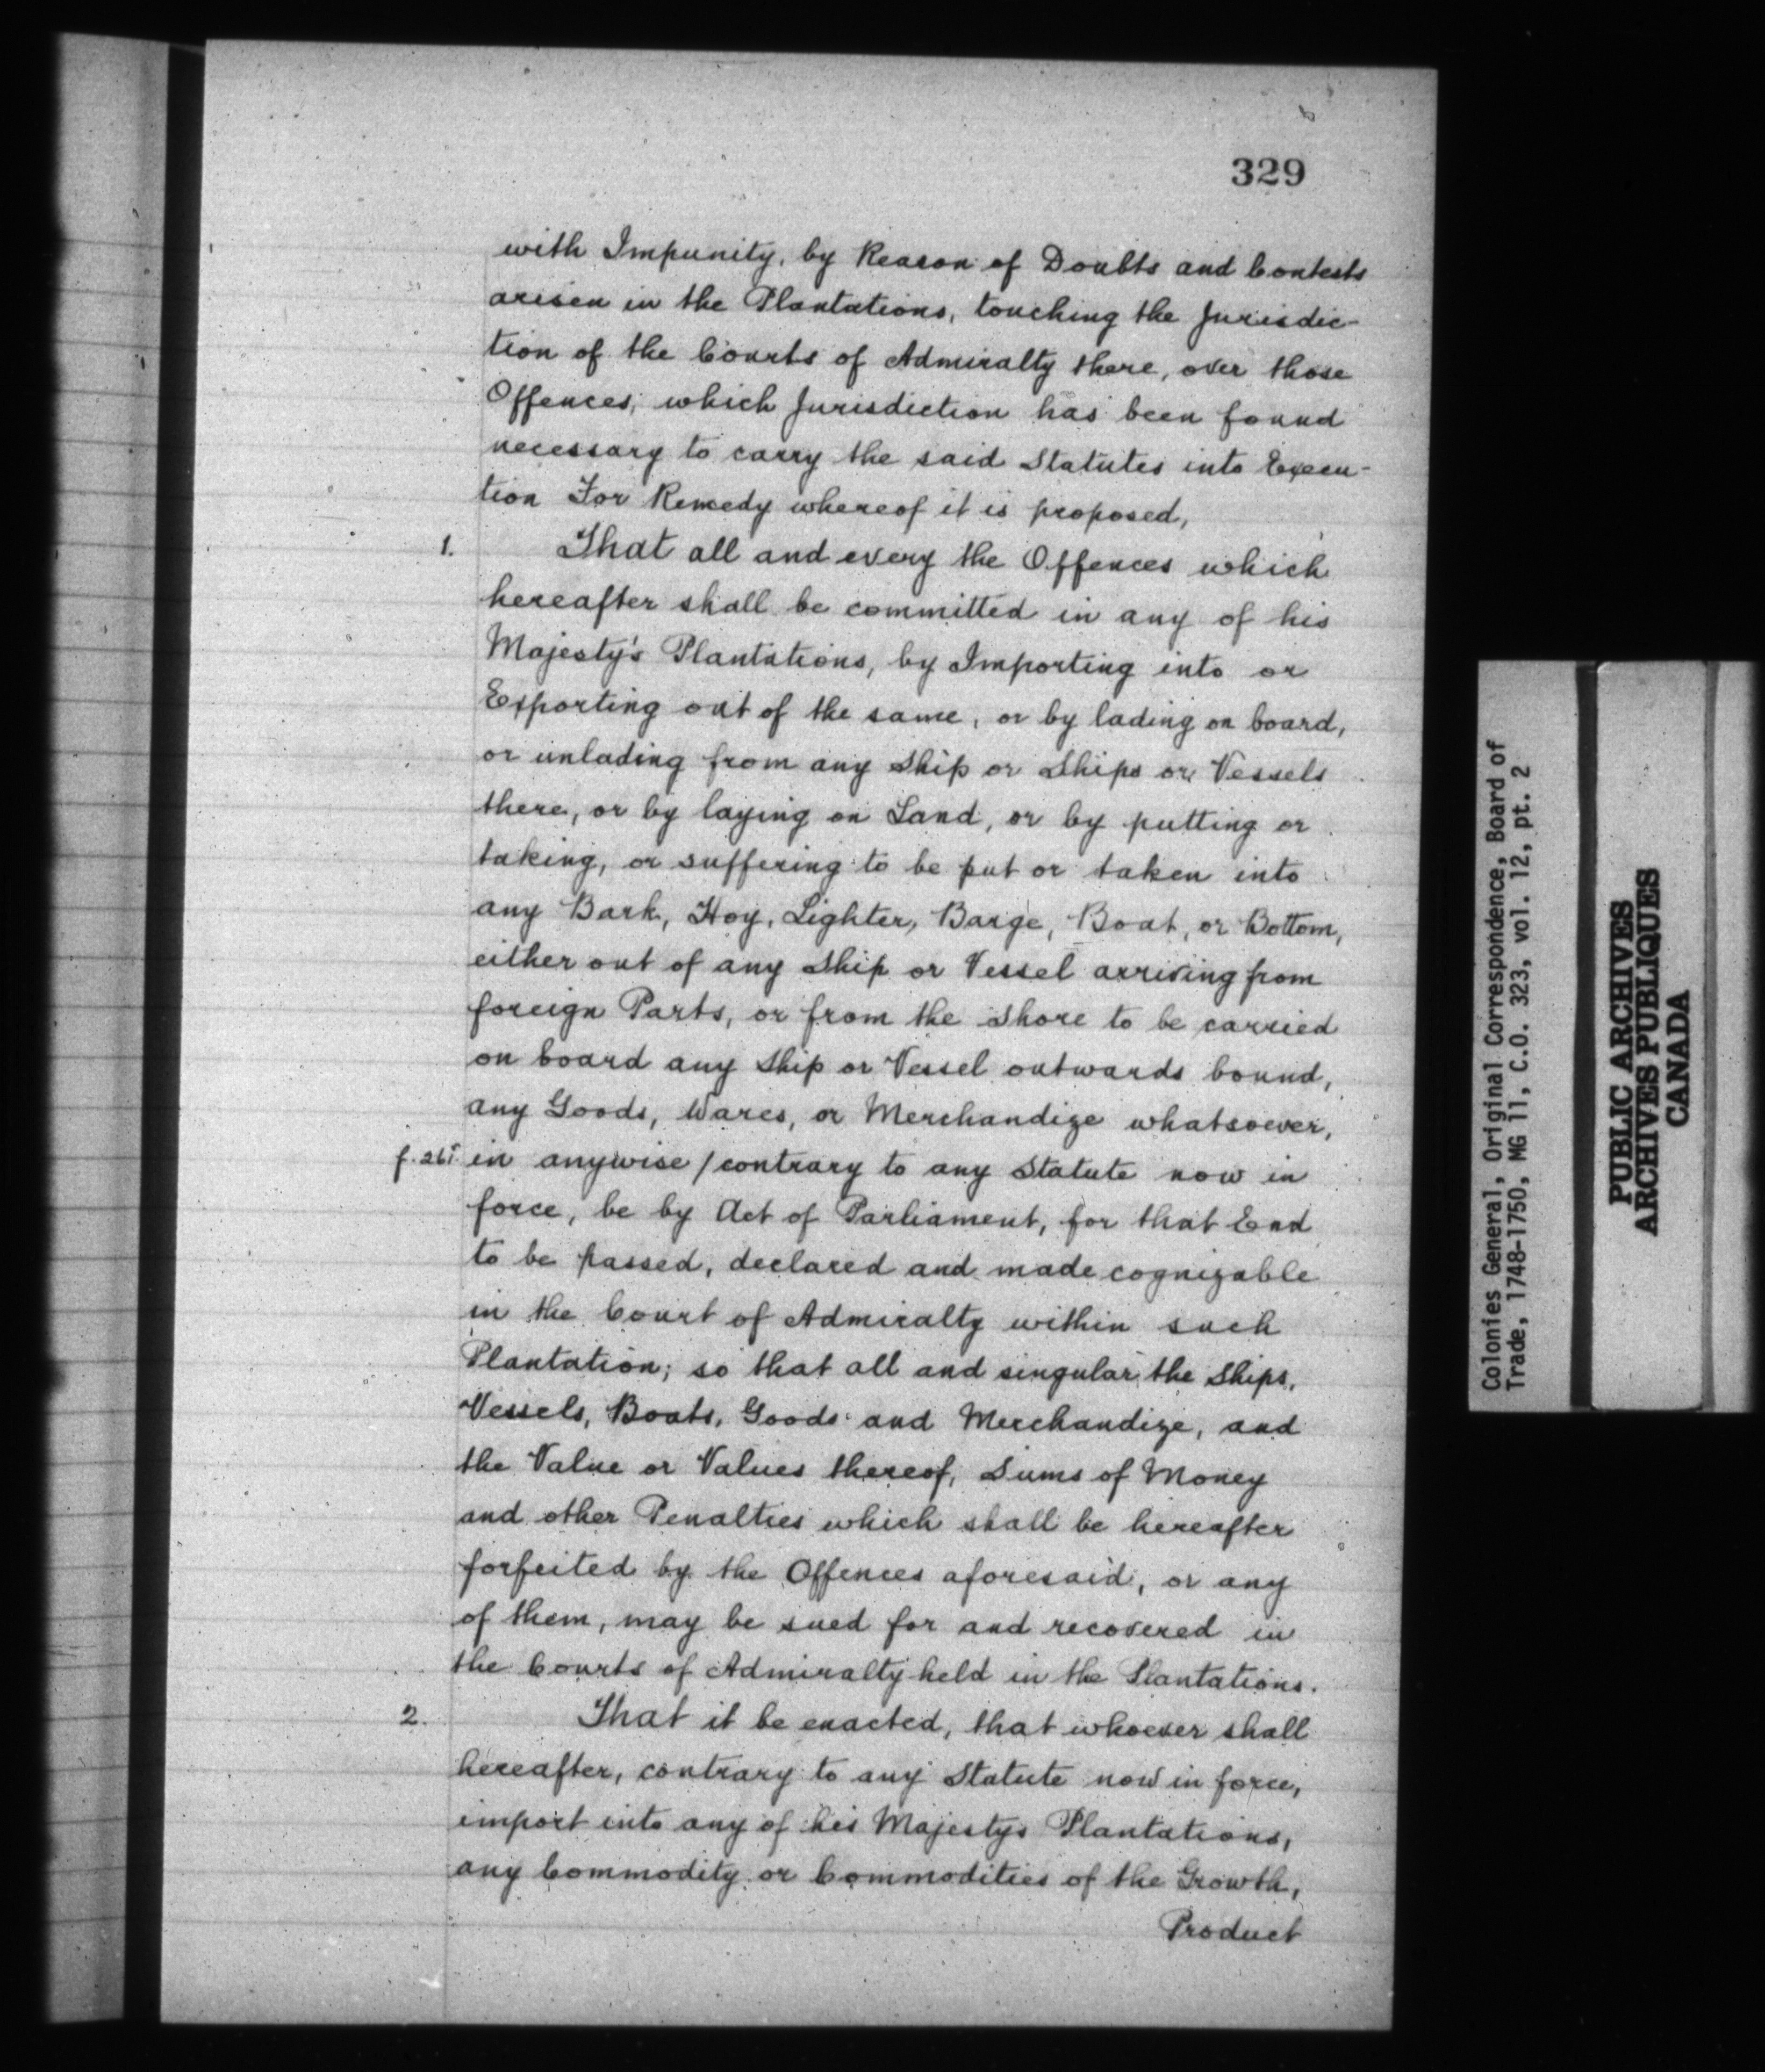 329
with Impunity, by Reason of Doubts and Contests
arisen in the Plantations, touching the Jurisdic-
tion of the Courts of Admiralty there, over those
Offences, which Jurisdiction has been found
necessary to carry the said Statutes into Execu-
tion For Remedy whereof it is proposed,
1. That all and every the Offences which
hereafter shall be committed in any of his
Majesty's Plantations, by Importing into or
Exporting out of the same, or by lading on board,
or unlading from any Ship or Ships or Vessels
there, or by laying on Land, or by putting or
taking, or suffering to be put or taken into
any Bark, Hoy, Lighter, Barge, Boat, or Bottom,
either out of any Ship or Vessel arriving from
foreign Parts, or from the Shore to be carried
on board any Ship or Vessel outwards bound,
any Goods, Wares, or Merchandize whatsoever,
in anywise / contrary to any Statute now in
force, be by Act of Parliament, for that End
to be passed, declared and made cognizable
in the Court of Admiralty within such
Plantation; so that all and singular the Ships,
Vessels, Boats, Goods and Merchandize, and
the Value or Values thereof, Sums of Money
and other Penalties which shall be hereafter
forfeited by the Offences aforesaid, or any
of them, may be sued for and recovered in
the Courts of Admiralty held in the Plantations.
2. That it be enacted, that whoever shall
hereafter, contrary to any Statute now in force,
import into any of his Majestys Plantations,
any Commodity or Commodities of the Growth,
Product
Colonies General, Original Correspondence, Board of
Trade, 1748-1750, MG 11, C.O. 323, vol. 12, pt. 2
PUBLIC ARCHIVES
ARCHIVES PUBLIQUES
CANADA